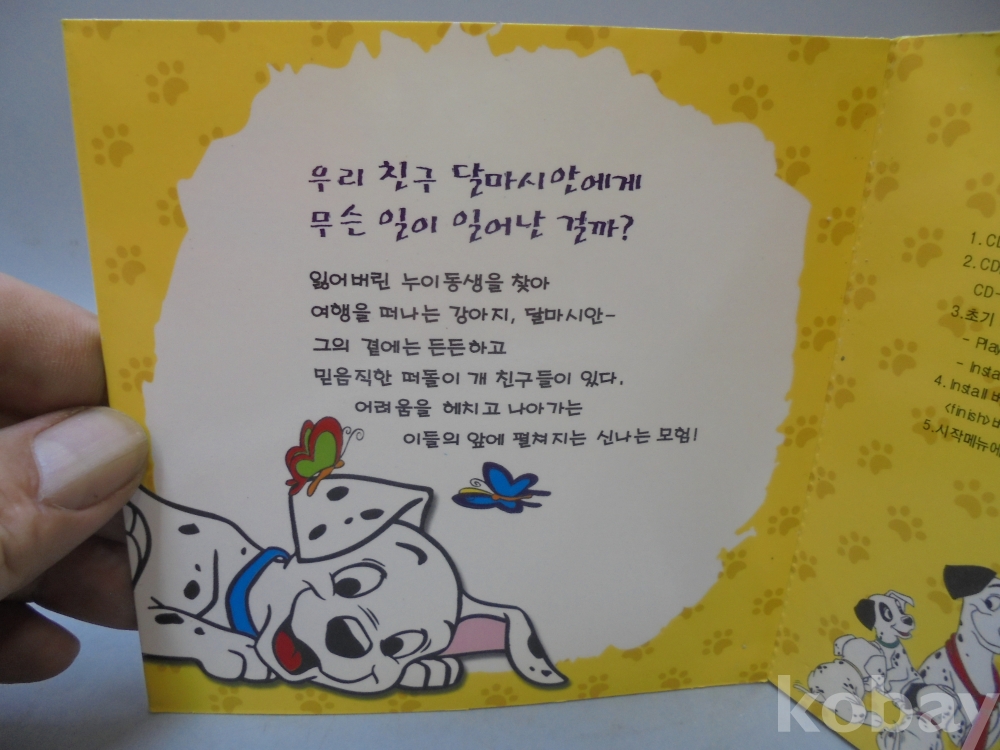 우리 친구 달마시안에게
무슨 일이 일어난 걸까?
잃어버린 누이동생을 찾아
여행을 떠나는 강아지, 달마시안-
그의 곁에는 든든하고
믿음직한 떠돌이 개 친구들이 있다.
어려움을 헤치고 나아가는
이들의 앞에 펼쳐지는 신나는 모험!
1. CD
2. CD
CD-
3.초기
- Play
- Install
4. Install 버
<finish> 버
5.시작메뉴에
kobay